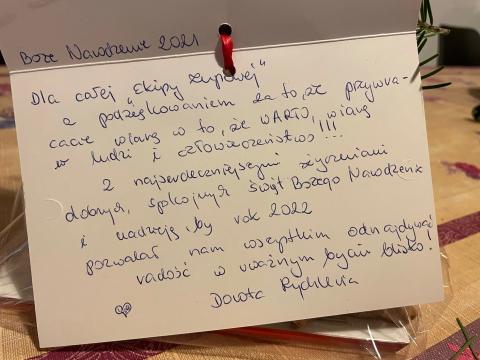 Boże Narodzenie 2021
Dla całej "Ekipy Zupowej"
z podziękowaniem za to, że przywra-
cacie wiarę w to, że WARTO, wiarę
w ludzi i człowieczeństwo!!!
Z najserdeczniejszymi życzeniami
dobrych, spokojnych Świąt Bożego Narodzenia
i nadzieją, by rok 2022
pozwalał nam wszystkim odnajdywać
radość w uważnym byciu blisko!
Dorota